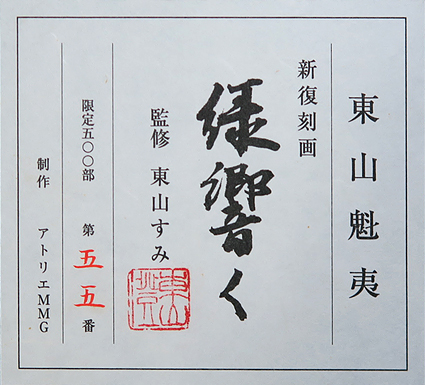 東山魁夷
新復刻画
緑響く
監修 東山すみ
限定五〇〇部 第五五番
制作 アトリエMMG